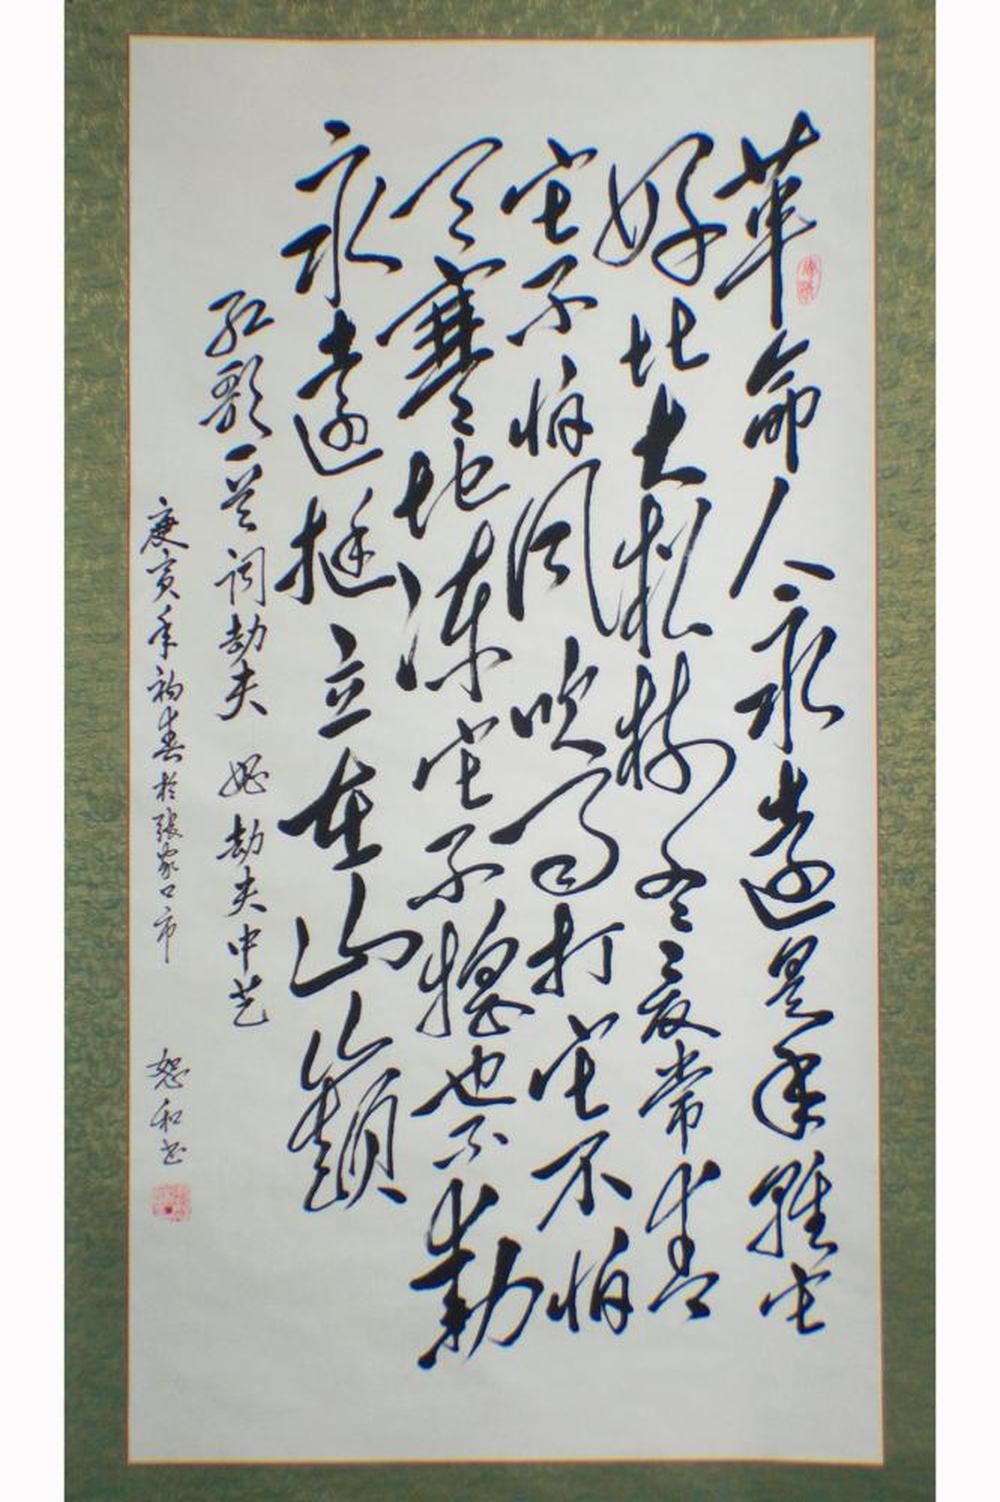 革命人永遠是年輕它
好比大松树冬夏常青
它不怕风吹雨打它不怕
天寒地冻它不摇也不動
永遠挺立在山巔
红歌一首词劫夫 劫夫中艺
庚寅年初春於張家口市 恕和书